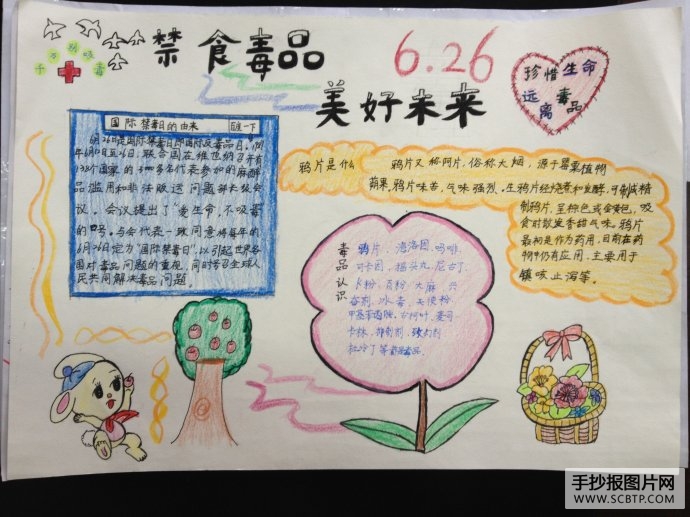 千万别吸毒
禁食毒品
6.26
美好未来
珍惜生命
远离毒品
国际禁毒日的由来
百度一下
6月26是国际禁毒日即国际反毒品日。1987
年6月12日至26日,联合国在维也纳召开有
138个国家的3000多名代表参加的麻醉
品滥用和非法贩运问题部长级会
议。会议提出了“爱生命,不吸毒”
的口号。与会代表一致同意将每年的
6月26日定为“国际禁毒日”,以引起世界各
国对毒品问题的重视,同时号召全球人
民共同解决毒品问题。
鸦片是什么
鸦片又称阿片,俗称大烟,源于罂粟植物
蒴果,鸦片味苦,气味强烈。生鸦片经烧煮和发酵,可制成精
制鸦片,呈棕色或金黄色。吸
食时散发香甜气味。鸦片
最初是作为药用,目前在药
物中仍有应用,主要用于
镇咳止泻等。
毒品认识
鸦片、海洛因、吗啡、
可卡因、摇头丸、尼古丁、
K粉、
大麻
冰毒、天使粉
杜冷丁等毒品毒品。
手抄报图片网
WWW.SCBTP.COM